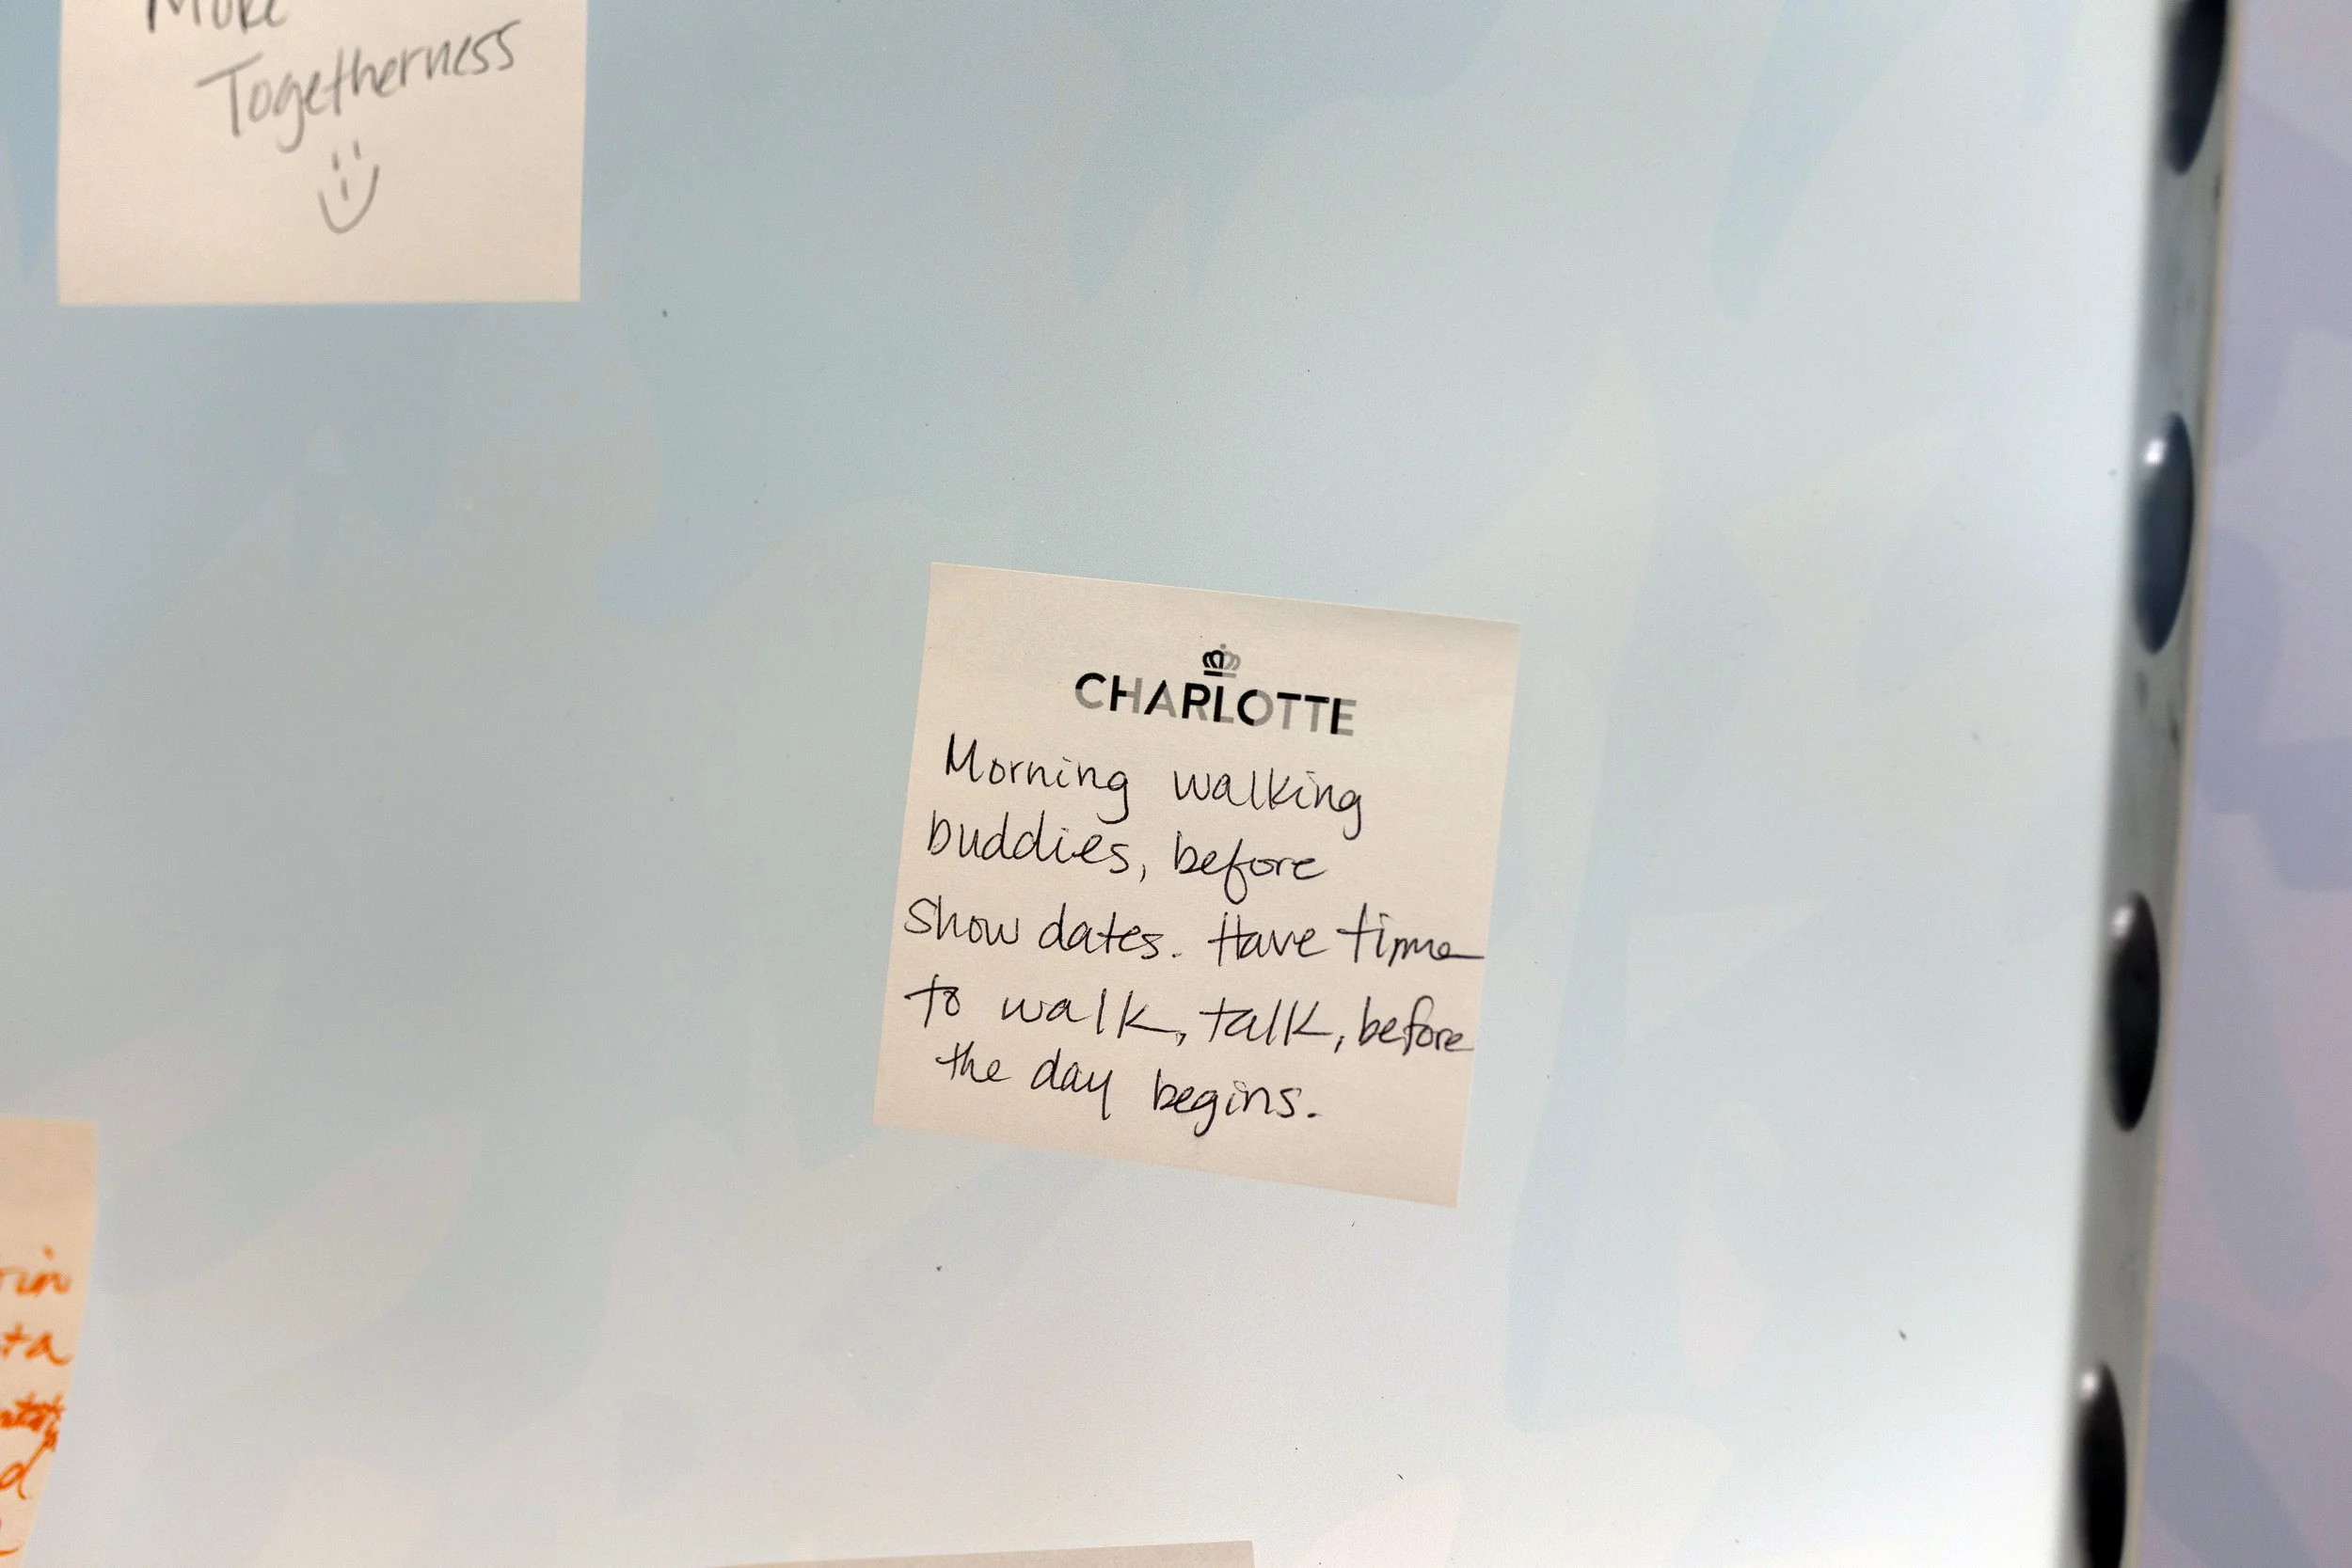 More
Togetherness
CHARLOTTE
Morning walking
buddies, before
show dates. Have time
to walk, talk, before
the day begins.
ta
d